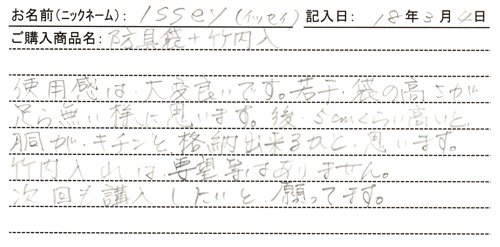 お名前(ニックネーム): ISSEY (イッセイ) 記入日: 18年3月4日
ご購入商品名: 防具袋+竹内入
使用感は、大変良いです。若干、袋の高さが
足ら無い様に思います。後、5cmくらい高いと
胴が、キチンと格納出来るかと、思います。
竹内入れは、要望等はありません。
次回も講入したいと、願ってます。